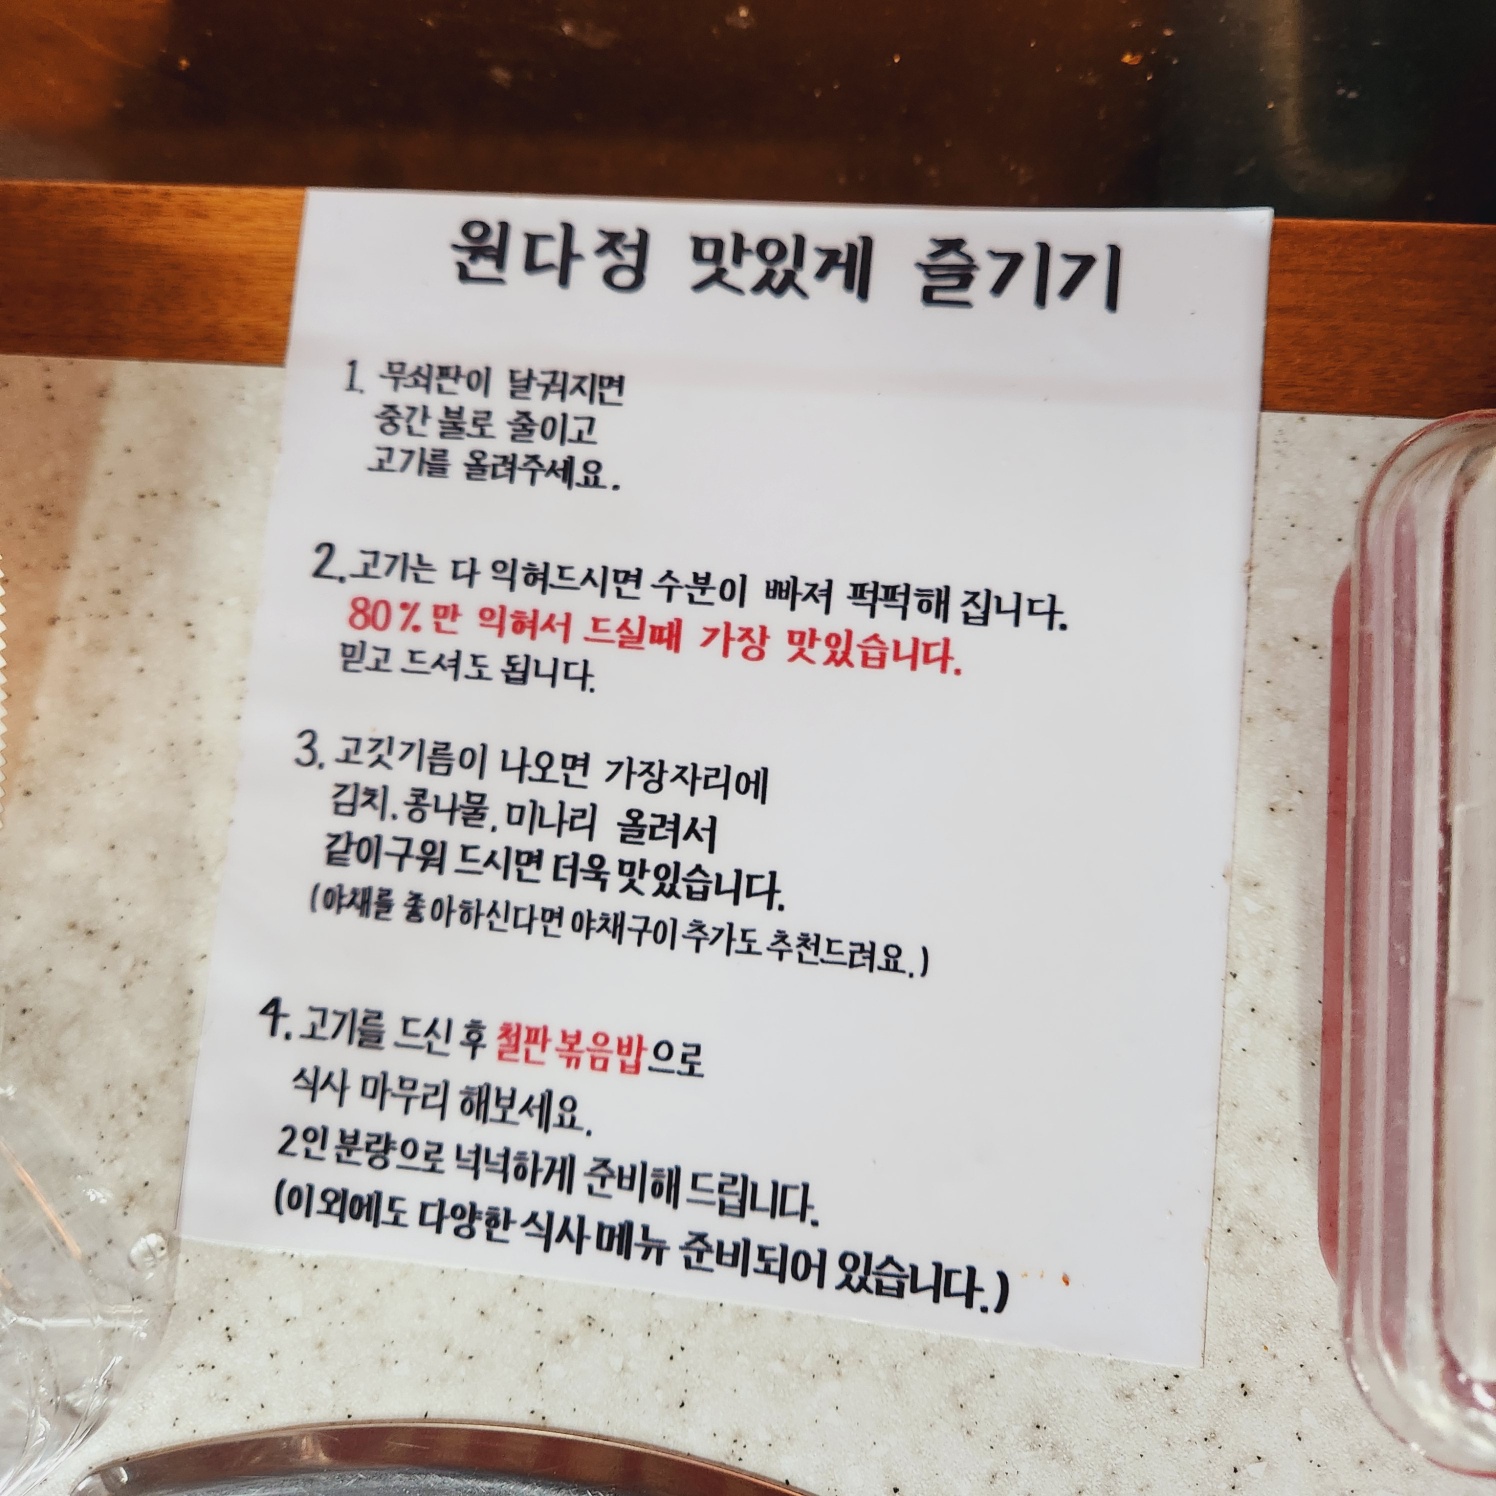 원다정 맛있게 즐기기
1. 무쇠판이 달궈지면
중간 불로 줄이고
고기를 올려주세요.
2. 고기는 다 익혀드시면 수분이 빠져 퍽퍽해 집니다.
80%만 익혀서 드실때 가장 맛있습니다.
믿고 드셔도 됩니다.
3. 고깃기름이 나오면 가장자리에
김치, 콩나물, 미나리 올려서
같이구워 드시면 더욱 맛있습니다.
(야채를 좋아하신다면 야채구이 추가도 추천드려요.)
4. 고기를 드신 후 철판 볶음밥으로
식사 마무리 해보세요.
2인 분량으로 넉넉하게 준비해 드립니다.
(이외에도 다양한 식사 메뉴 준비되어 있습니다.)